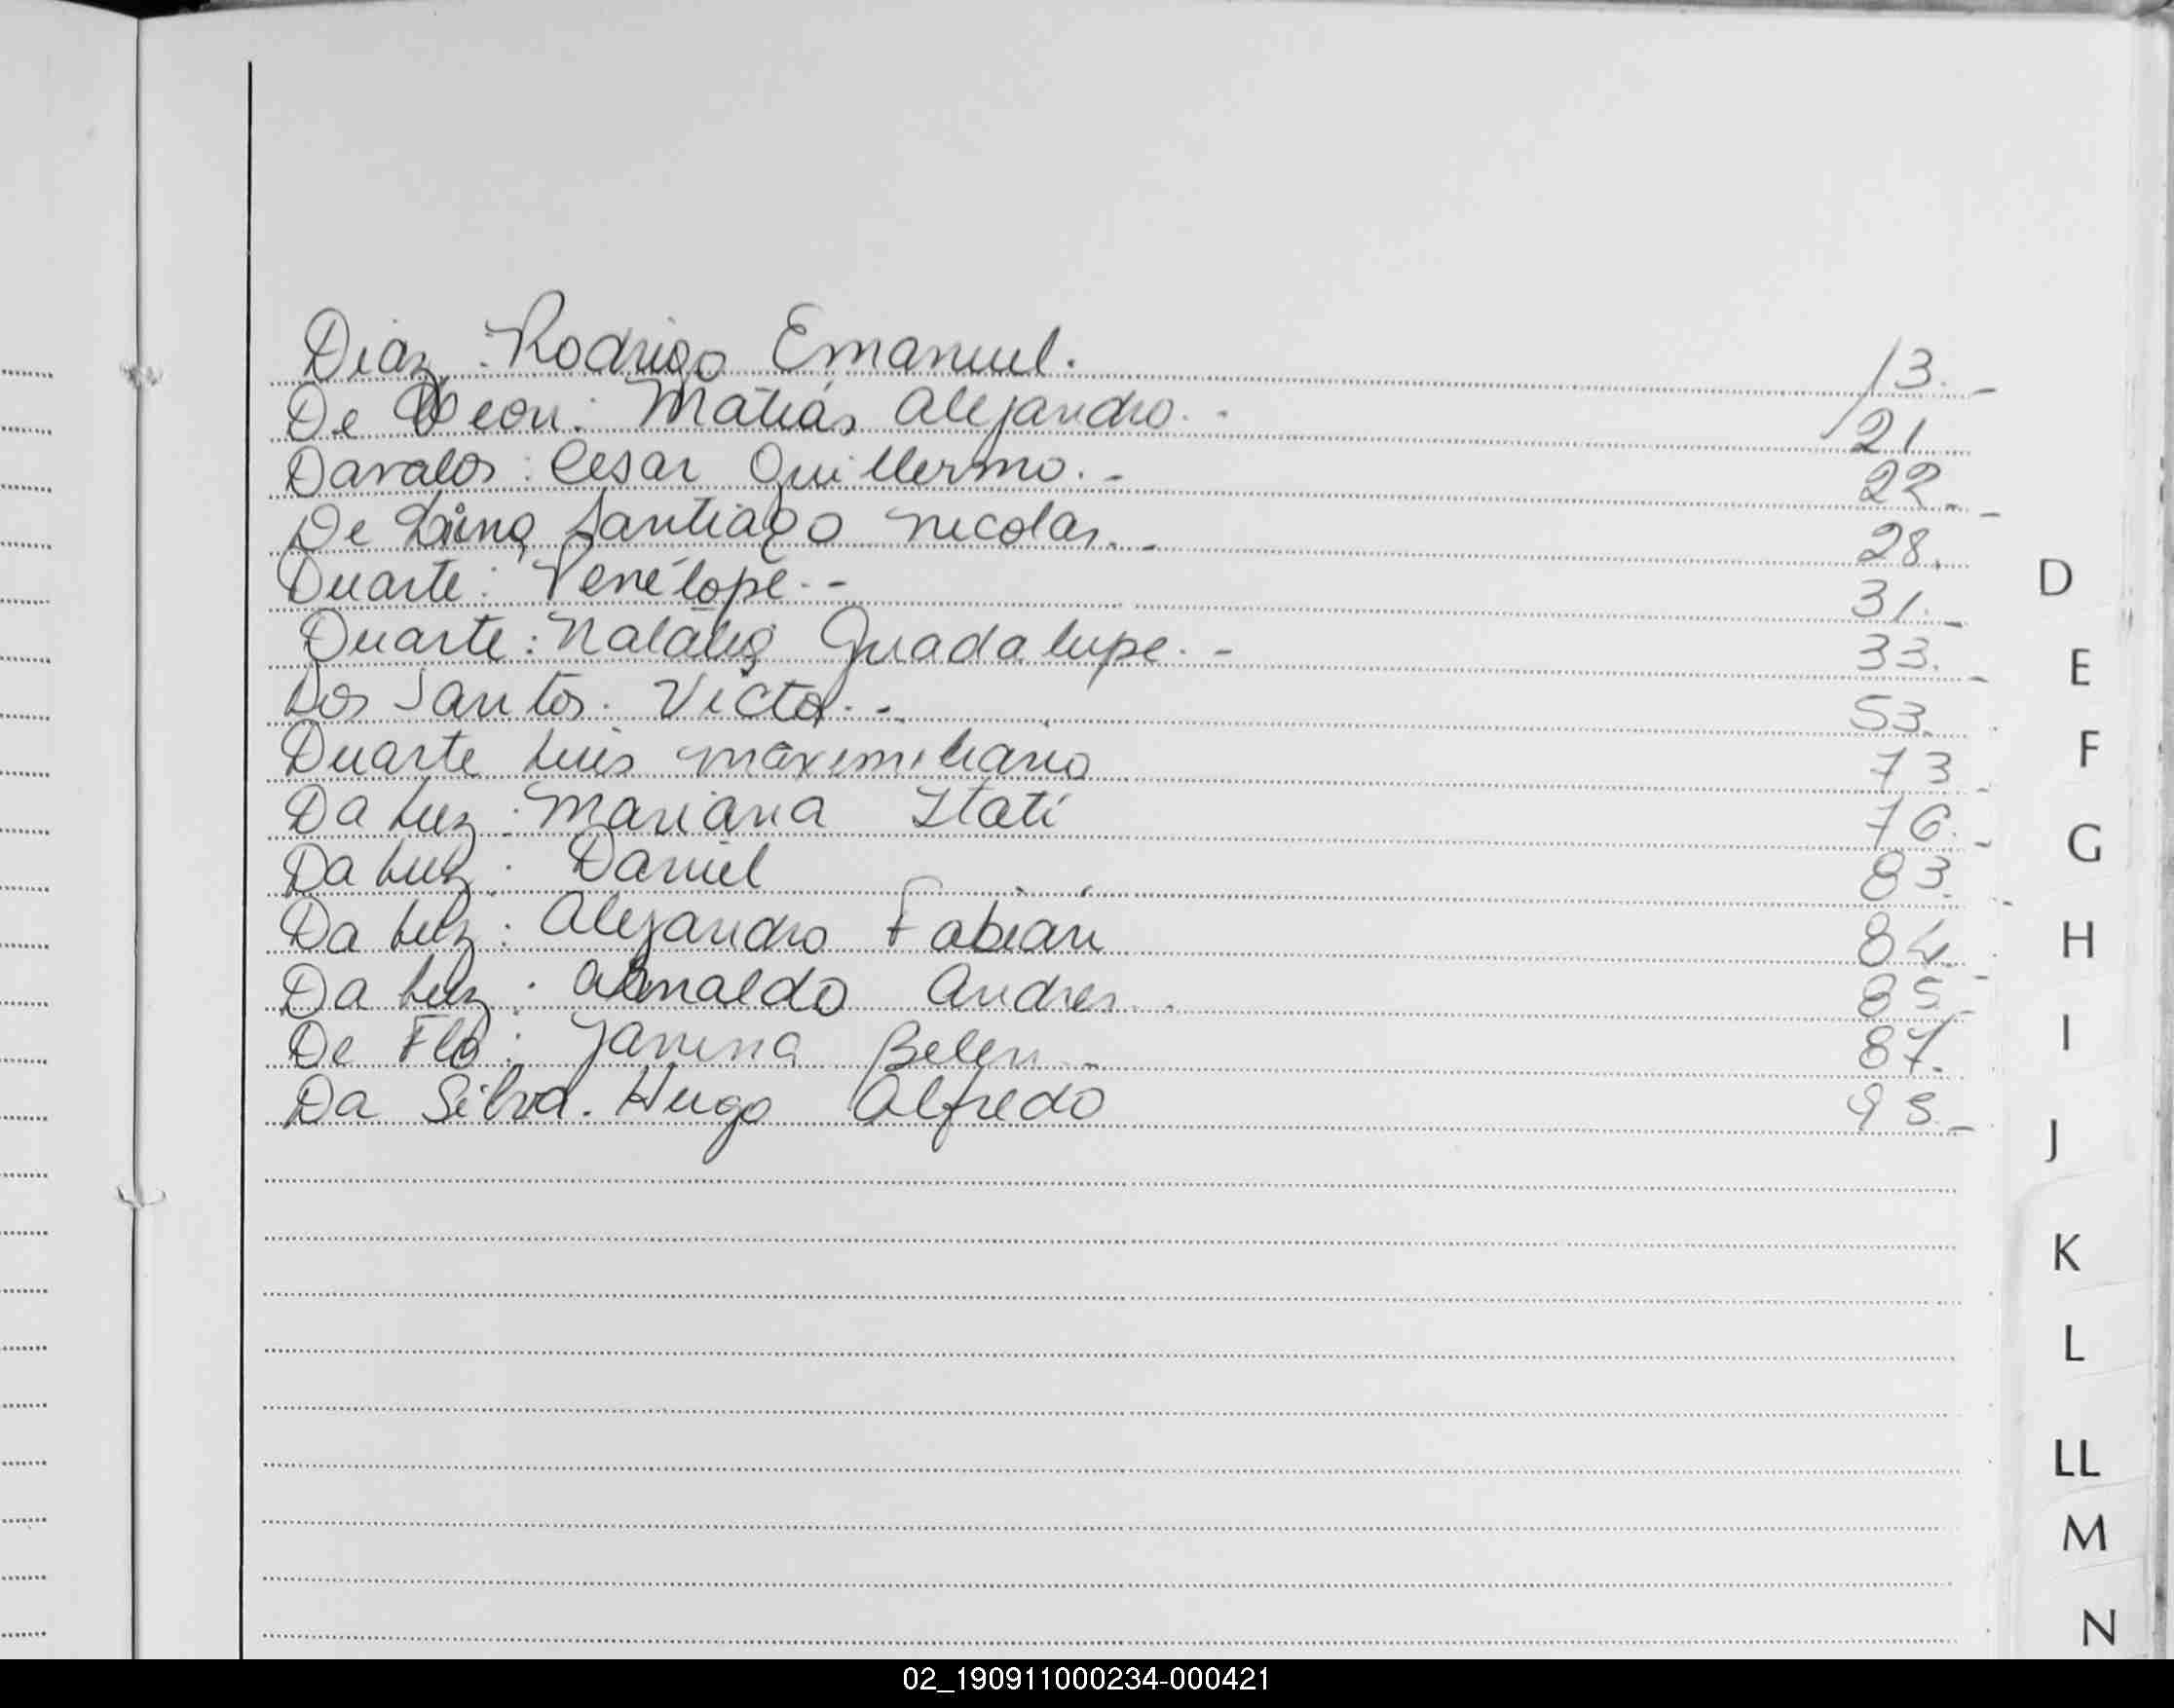 Diaz : Rodrigo Emanuel. 13.-
De Leon : Matias Alejandro.- 21
Davalos : Cesar Guillermo.- 22.-
De Lima Santiago Nicolas.- 28.
Duarte : Penélope.- 31.-
Duarte : Natalia Guadalupe.- 33.-
Dos Santos. Victor.- 53.
Duarte Luis Maximiliano 73.-
Da Luz : Mariana Itatí 76.-
Da Luz : Daniel 83.-
Da Luz : Alejandro Fabian 84.-
Da Luz : Arnaldo Andres. 85.-
De Flo : Janina Belen.- 87.-
Da Silva. Hugo Alfredo 95.-
D
E
F
G
H
I
J
K
L
LL
M
N
02_190911000234-000421